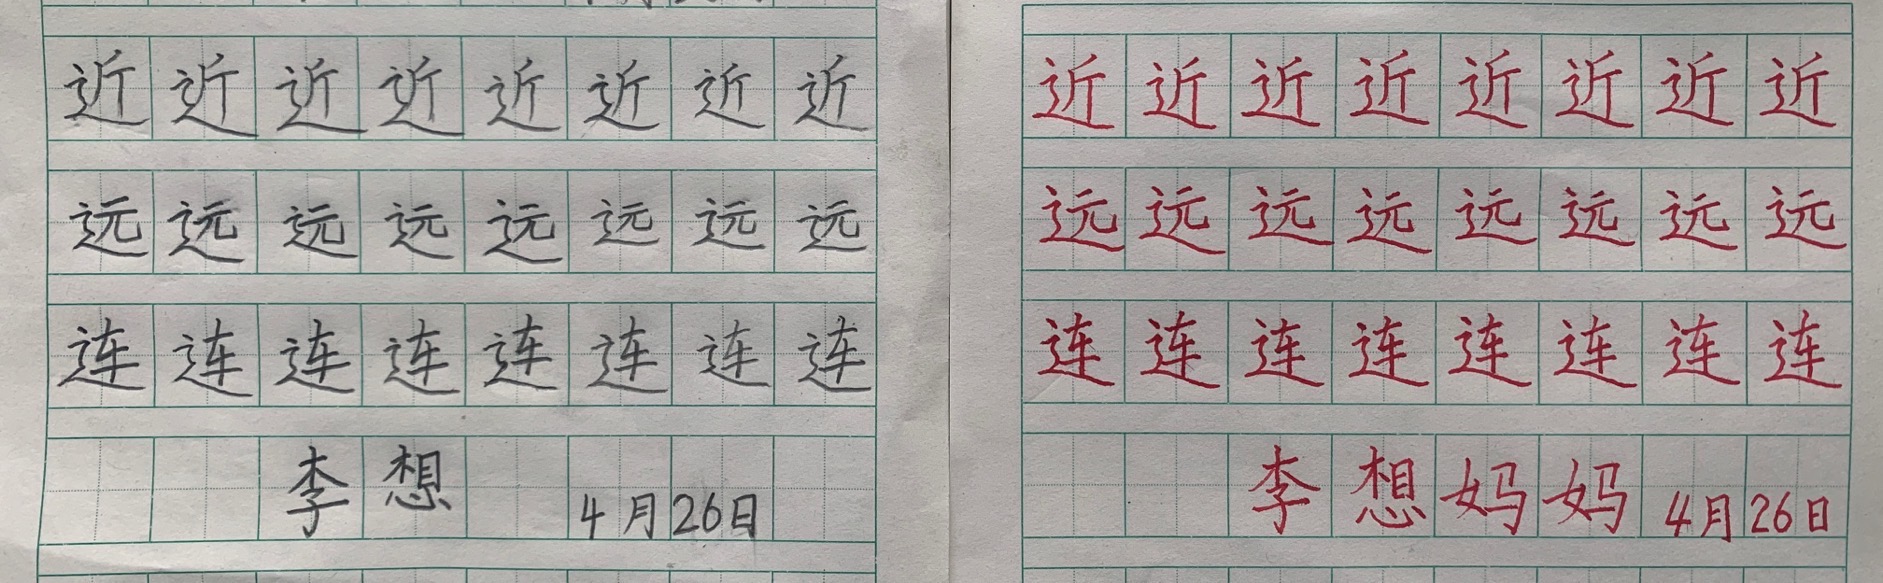 近近近近近近近近
远远远远远远远远
连连连连连连连连
李想 4月26日
近近近近近近近近
远远远远远远远远
连连连连连连连连
李想妈妈 4月26日